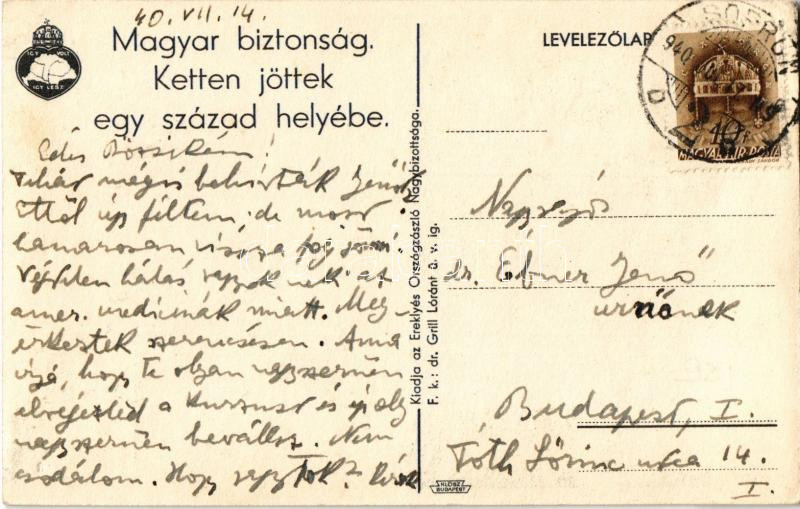 40. VII. 14.
Magyar biztonság.
Ketten jöttek
egy század helyébe.
ÍGY VOLT
ÍGY LESZ
LEVELEZŐLAP
SOPRON
940
MAGYAR KIR. POSTA
Édes Bözsikém!
Tehát mégis behívták Jenőt
Ettől úgy féltem de most
hamarosan vissza fog jönni
Végtelen hálás vagyok nektek az
amer. medicinák miatt. Meg-
érkeztek szerencsésen. Anna
írja, hogy Te olyan nagyszerűen
elvégezted a kurzust és oly
nagyszerűen beválsz. Nem
csodálom. Hogy vagytok?
Kiadja az Ereklyés Országzászló Nagybizottsága.
F. k.: dr. Grill Lóránt ü. v. ig.
Nagyságos
dr. Ebner Jenő
urnőnek
Budapest, I.
Tóth Lőrinc utca 14.
I.
KLÖSZ
BUDAPEST